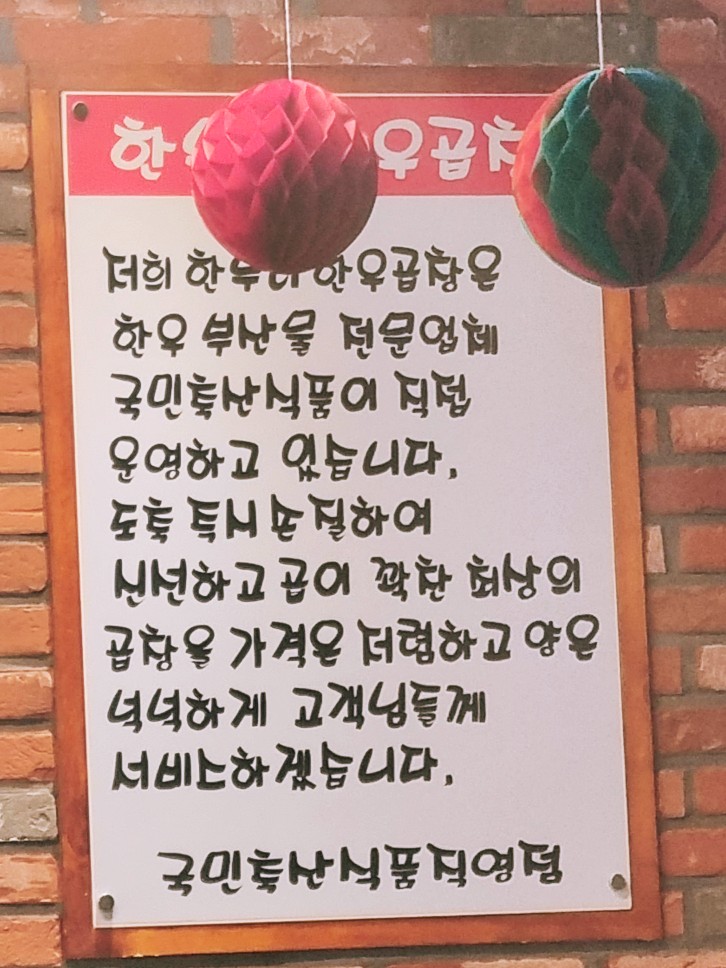 한 우곱
저희 한우리 한우곱창은
한우 부산물 전문업체
국민축산식품이 직접
운영하고 있습니다.
도축 즉시 손질하여
신선하고 곱이 꽉찬 최상의
곱창을 가격은 저렴하고 양은
넉넉하게 고객님들께
서비스하겠습니다.
국민축산식품직영점